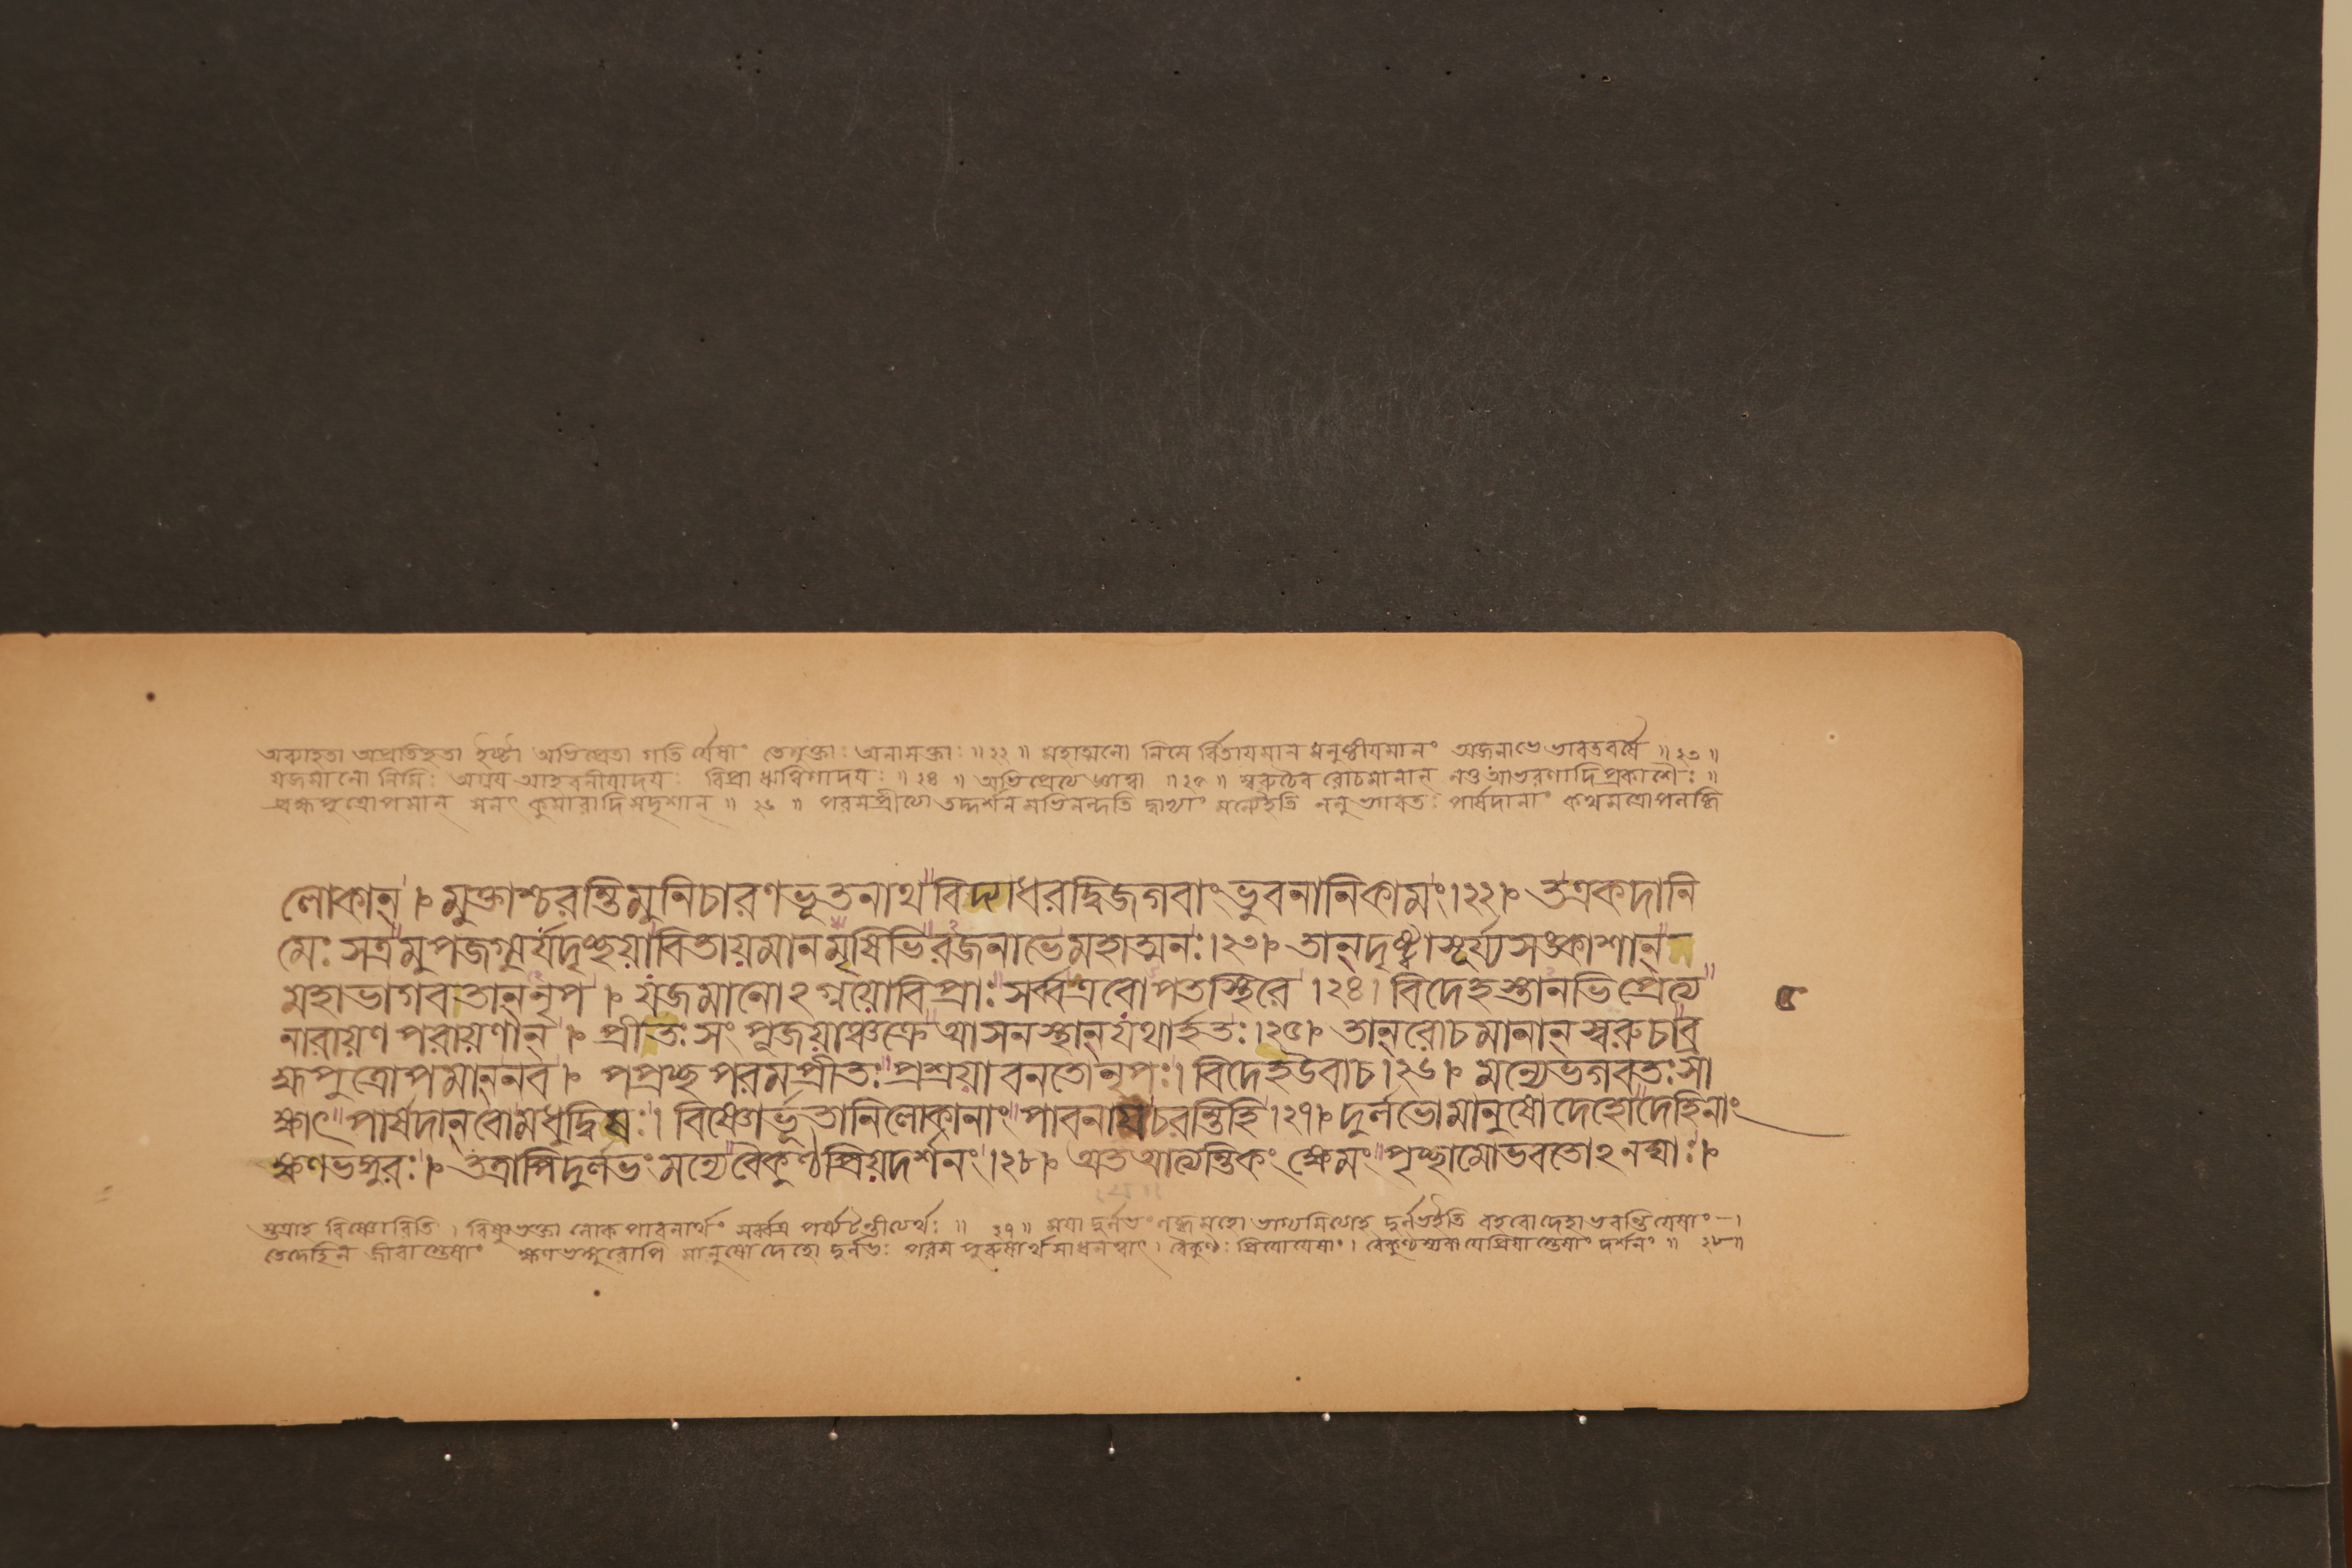 অব্যাহতা অপ্রতিহতা ইষ্টা অভিপ্রেতা গতি র্যেষাং তেমুক্তাঃ অনাসক্তাঃ ॥ ২২ ॥ মহাত্মনো নিমে র্বিতায়মান মনুষ্ঠীয়মানং অজনাভে ভারতবর্ষে ॥ ২৩ ॥
যজমানো নিমিঃ অগ্নয় আহবনীয়াদয়ঃ বিপ্রা ঋত্বিগাদয়ঃ ॥ ২৪ ॥ অভিপ্রেত্য জ্ঞাত্বা ॥ ২৫ ॥ স্বরুচৈব রোচমানান্ নতু আভরণাদি প্রকাশৈঃ ॥
ব্রহ্মপুত্রোপমান্ সনৎ কুমারাদি সদৃশান্ ॥ ২৬ ॥ পরমপ্রীতো তদ্দর্শন মভিনন্দতি দ্বাভ্যাং মন্যেইতি ননু ভগবতঃ পার্ষদানাং কথমত্রোপলব্ধি
লোকান্ । মুক্তাশ্চরন্তিমুনিচারণভূতনাথবিদ্যাধরদ্বিজগবাং ভুবনানিকামং । ২২ । তএকদানি
মেঃ সত্রমুপজগ্মুর্যদৃচ্ছয়া বিতায়মানমৃষিভিরজনাভেমহাত্মনঃ । ২৩ । তান্ দৃষ্ট্বাসূর্য্যসঙ্কাশান্
মহাভাগবতান্ নৃপ । যজমানোঽগ্নয়োবিপ্রাঃ সর্ব্বএবোপতস্থিরে । ২৪ । বিদেহস্তানভিপ্রেত্য
নারায়ণ পরায়ণান্ । প্রীতঃ সং পূজয়াঞ্চক্রে আসনস্থান্ যথার্হতঃ । ২৫ । তান্ রোচমানান্ স্বরুচাব্র
হ্মপুত্রোপমান্ নব । পপ্রচ্ছ পরমপ্রীতঃ প্রশ্রয়াবনতোনৃপঃ । বিদেহউবাচ । ২৬ । মন্যেভগবতঃ সা
ক্ষাৎ পার্ষদান্ বোমধুদ্বিষঃ । বিষ্ণোর্ভূতানিলোকানাং পাবনায়চরন্তিহি । ২৭ । দুর্লভোমানুষোদেহোদেহিনাং
ক্ষণভঙ্গুরঃ । তত্রাপিদুর্লভং মন্যেবৈকুণ্ঠপ্রিয়দর্শনং । ২৮ । অতআত্যন্তিকং ক্ষেমং পৃচ্ছামোভবতোঽনঘাঃ ।
৫
স্তত্রাহ বিষ্ণোরিতি । বিষ্ণুভক্তা লোক পাবনার্থং সর্ব্বত্র পর্য্যটন্তীত্যর্থঃ ॥ ২৭ ॥ দুর্লভইতি বহবো দেহা ভবন্তি যেষাং
তেদেহিন জীবা স্তেষাং ক্ষণভঙ্গুরোপি মানুষো দেহো দুর্লভঃ পরম পুরুষার্থ সাধনত্বাৎ । বৈকুণ্ঠঃ প্রিয়োযেষাং । বৈকুণ্ঠস্যবা যেপ্রিয়া স্তেষাং দর্শনং ॥ ২৮ ॥